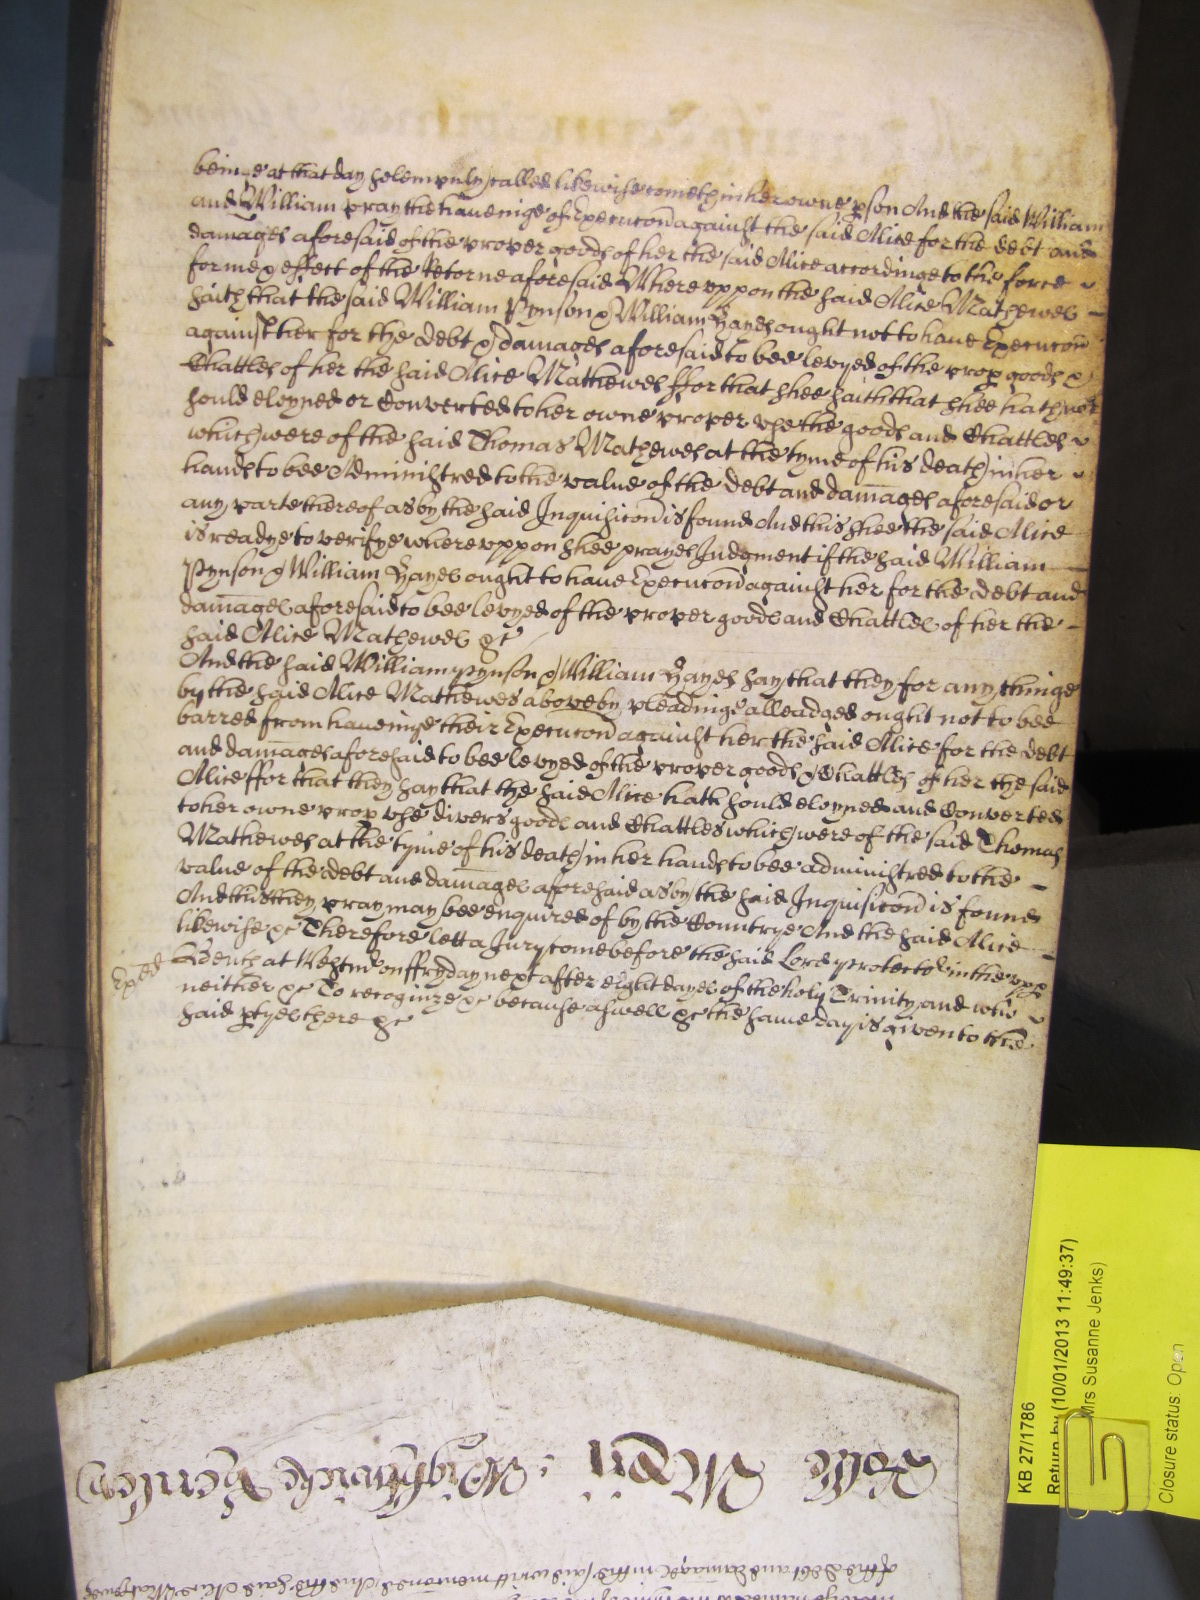 beinge at that day solempnly called likewise cometh in her owne pson And the said William
and William pray the haveinge of Execucon against the said Alice for the debt and
damages aforesaid of the proper goods of her the said Alice accordinge to the force
forme & effect of the Retorne aforesaid Whereuppon the said Alice Mathewes
saith that the said William Pynson & William Hayes ought not to have Execucon
against her for the debt & damages aforesaid to bee levyed of the prop goods &
Chattles of her the said Alice Mathewes ffor that shee saith that shee hath not
sould eloyned or Converted to her owne proper use the goods and Chattles
which were of the said Thomas Mathewes at the tyme of his death in her
hands to bee Administred to the value of the debt and damages aforesaid or
any parte thereof as by the said Inquisicon is found And this shee the said Alice
is readye to verifye whereuppon shee prayes Judgment if the said William
Pynson & William Hayes ought to have Execucon against her for the debt and
damages aforesaid to bee levyed of the proper goods and Chattles of her the
said Alice Mathewes &c
And the said William Pynson & William Hayes say that they for any thinge
by the said Alice Mathewes above by pleadinge alleadged ought not to bee
barred from haveinge their Execucon against her the said Alice for the debt
and damages aforesaid to bee levyed of the proper goods & Chattles of her the said
Alice ffor that they say that the said Alice hath sould eloyned and Converted
to her owne prop use divers goods and Chattles which were of the said Thomas
Mathewes at the tyme of his death in her hands to bee administred to the
value of the debt and damages aforesaid as by the said Inquisicon is found
And this they pray may bee enquired of by the Countrye And the said Alice
likewise &c Therefore lett a Jury come before the said Lord Protector in the upp
Bench at Westm on ffryday next after eight dayes of the holy Trinity and who
neither &c To recoginze &c because aswell &c the same day is given to the
said ptyes there &c
KB 27/1786
Return by (10/01/2013 11:49:37)
Mrs Susanne Jenks)
Closure status: Open